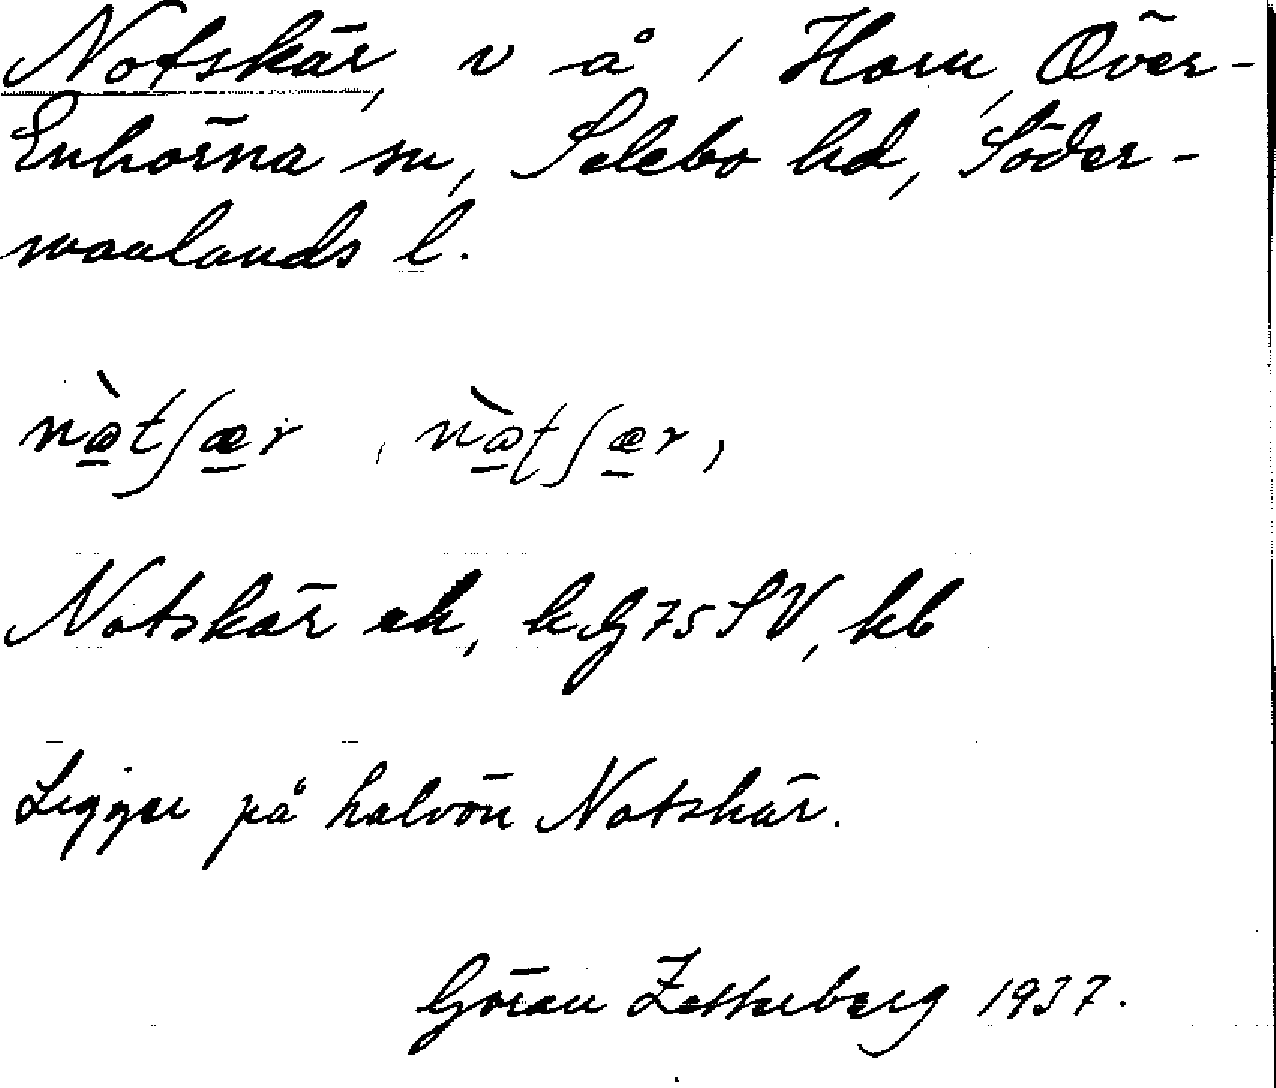 Notskär, v å / Horn, Över-
Enhörna sn, Selebo hd, Söder-
manlands l.
nàtʃær, nàtʃær,
Notskär ek, kfg 75 SV, kb
Ligger på halvön Notskär.
Göran Zetterberg 1937.